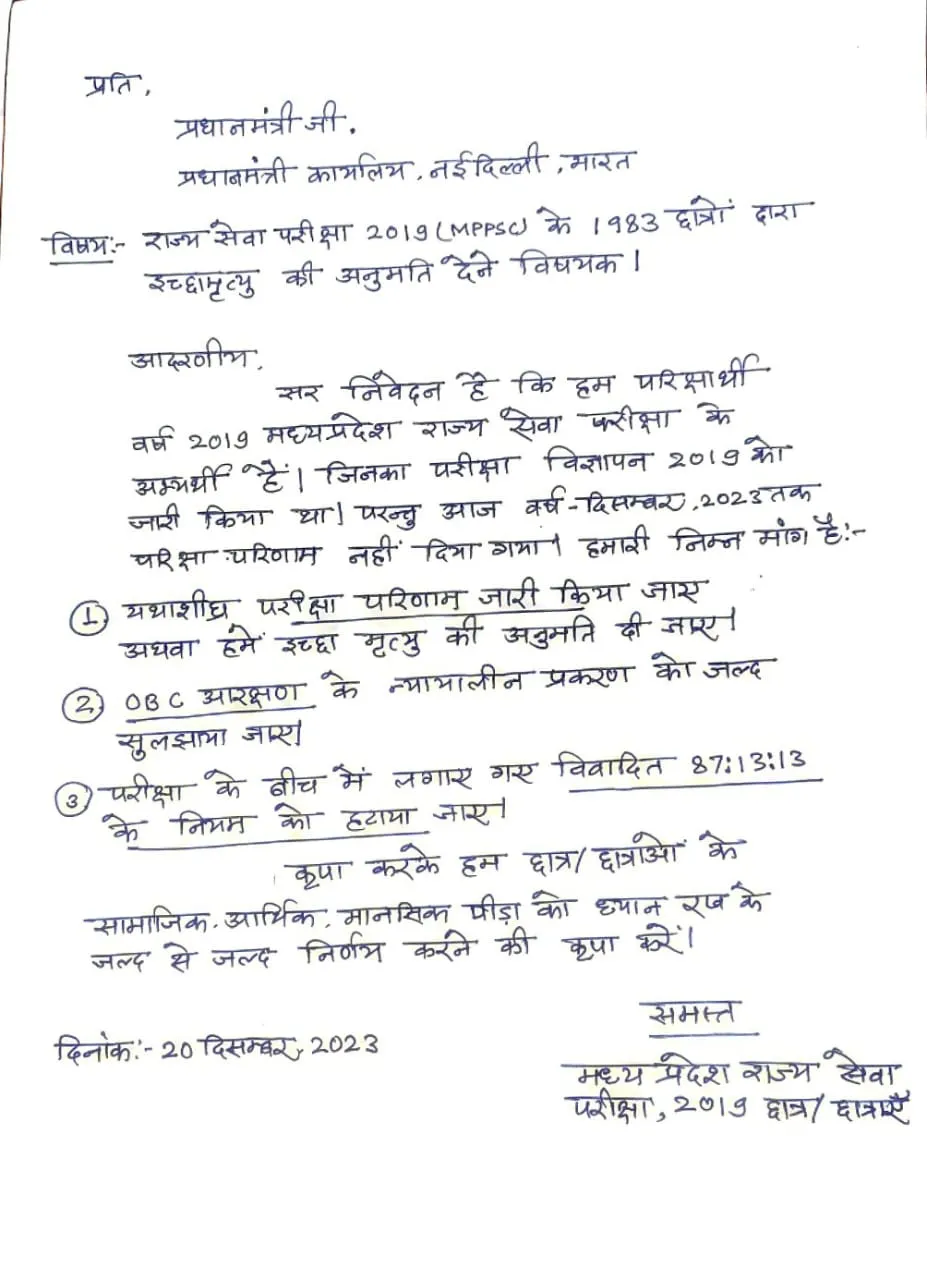 प्रति,
प्रधानमंत्री जी.
प्रधानमंत्री कार्यालय, नई दिल्ली, भारत
विषय:- राज्य सेवा परीक्षा 2019 (MPPSC) के 1983 छात्रों द्वारा
इच्छामृत्यु की अनुमति देने विषयक।
आदरणीय,
सर निवेदन है कि हम परिक्षार्थी
वर्ष 2019 मध्यप्रदेश राज्य सेवा परीक्षा के
अभ्यर्थी हैं। जिनका परीक्षा विज्ञापन 2019 को
जारी किया था। परन्तु आज वर्ष-दिसम्बर, 2023 तक
परिक्षा परिणाम नहीं दिया गया। हमारी निम्न मांग है:-
① यथाशीघ्र परीक्षा परिणाम जारी किया जाए
अथवा हमें इच्छा मृत्यु की अनुमति दी जाए।
② OBC आरक्षण के न्यायालीन प्रकरण को जल्द
सुलझाया जाए।
③ परीक्षा के बीच में लगाए गए विवादित 87:13:13
के नियम को हटाया जाए।
कृपा करके हम छात्र/छात्राओं के
सामाजिक, आर्थिक, मानसिक पीड़ा को ध्यान रख के
जल्द से जल्द निर्णय करने की कृपा करें।
समस्त
दिनांक:- 20 दिसम्बर, 2023
मध्य प्रदेश राज्य सेवा
परीक्षा, 2019 छात्र/छात्राएँ